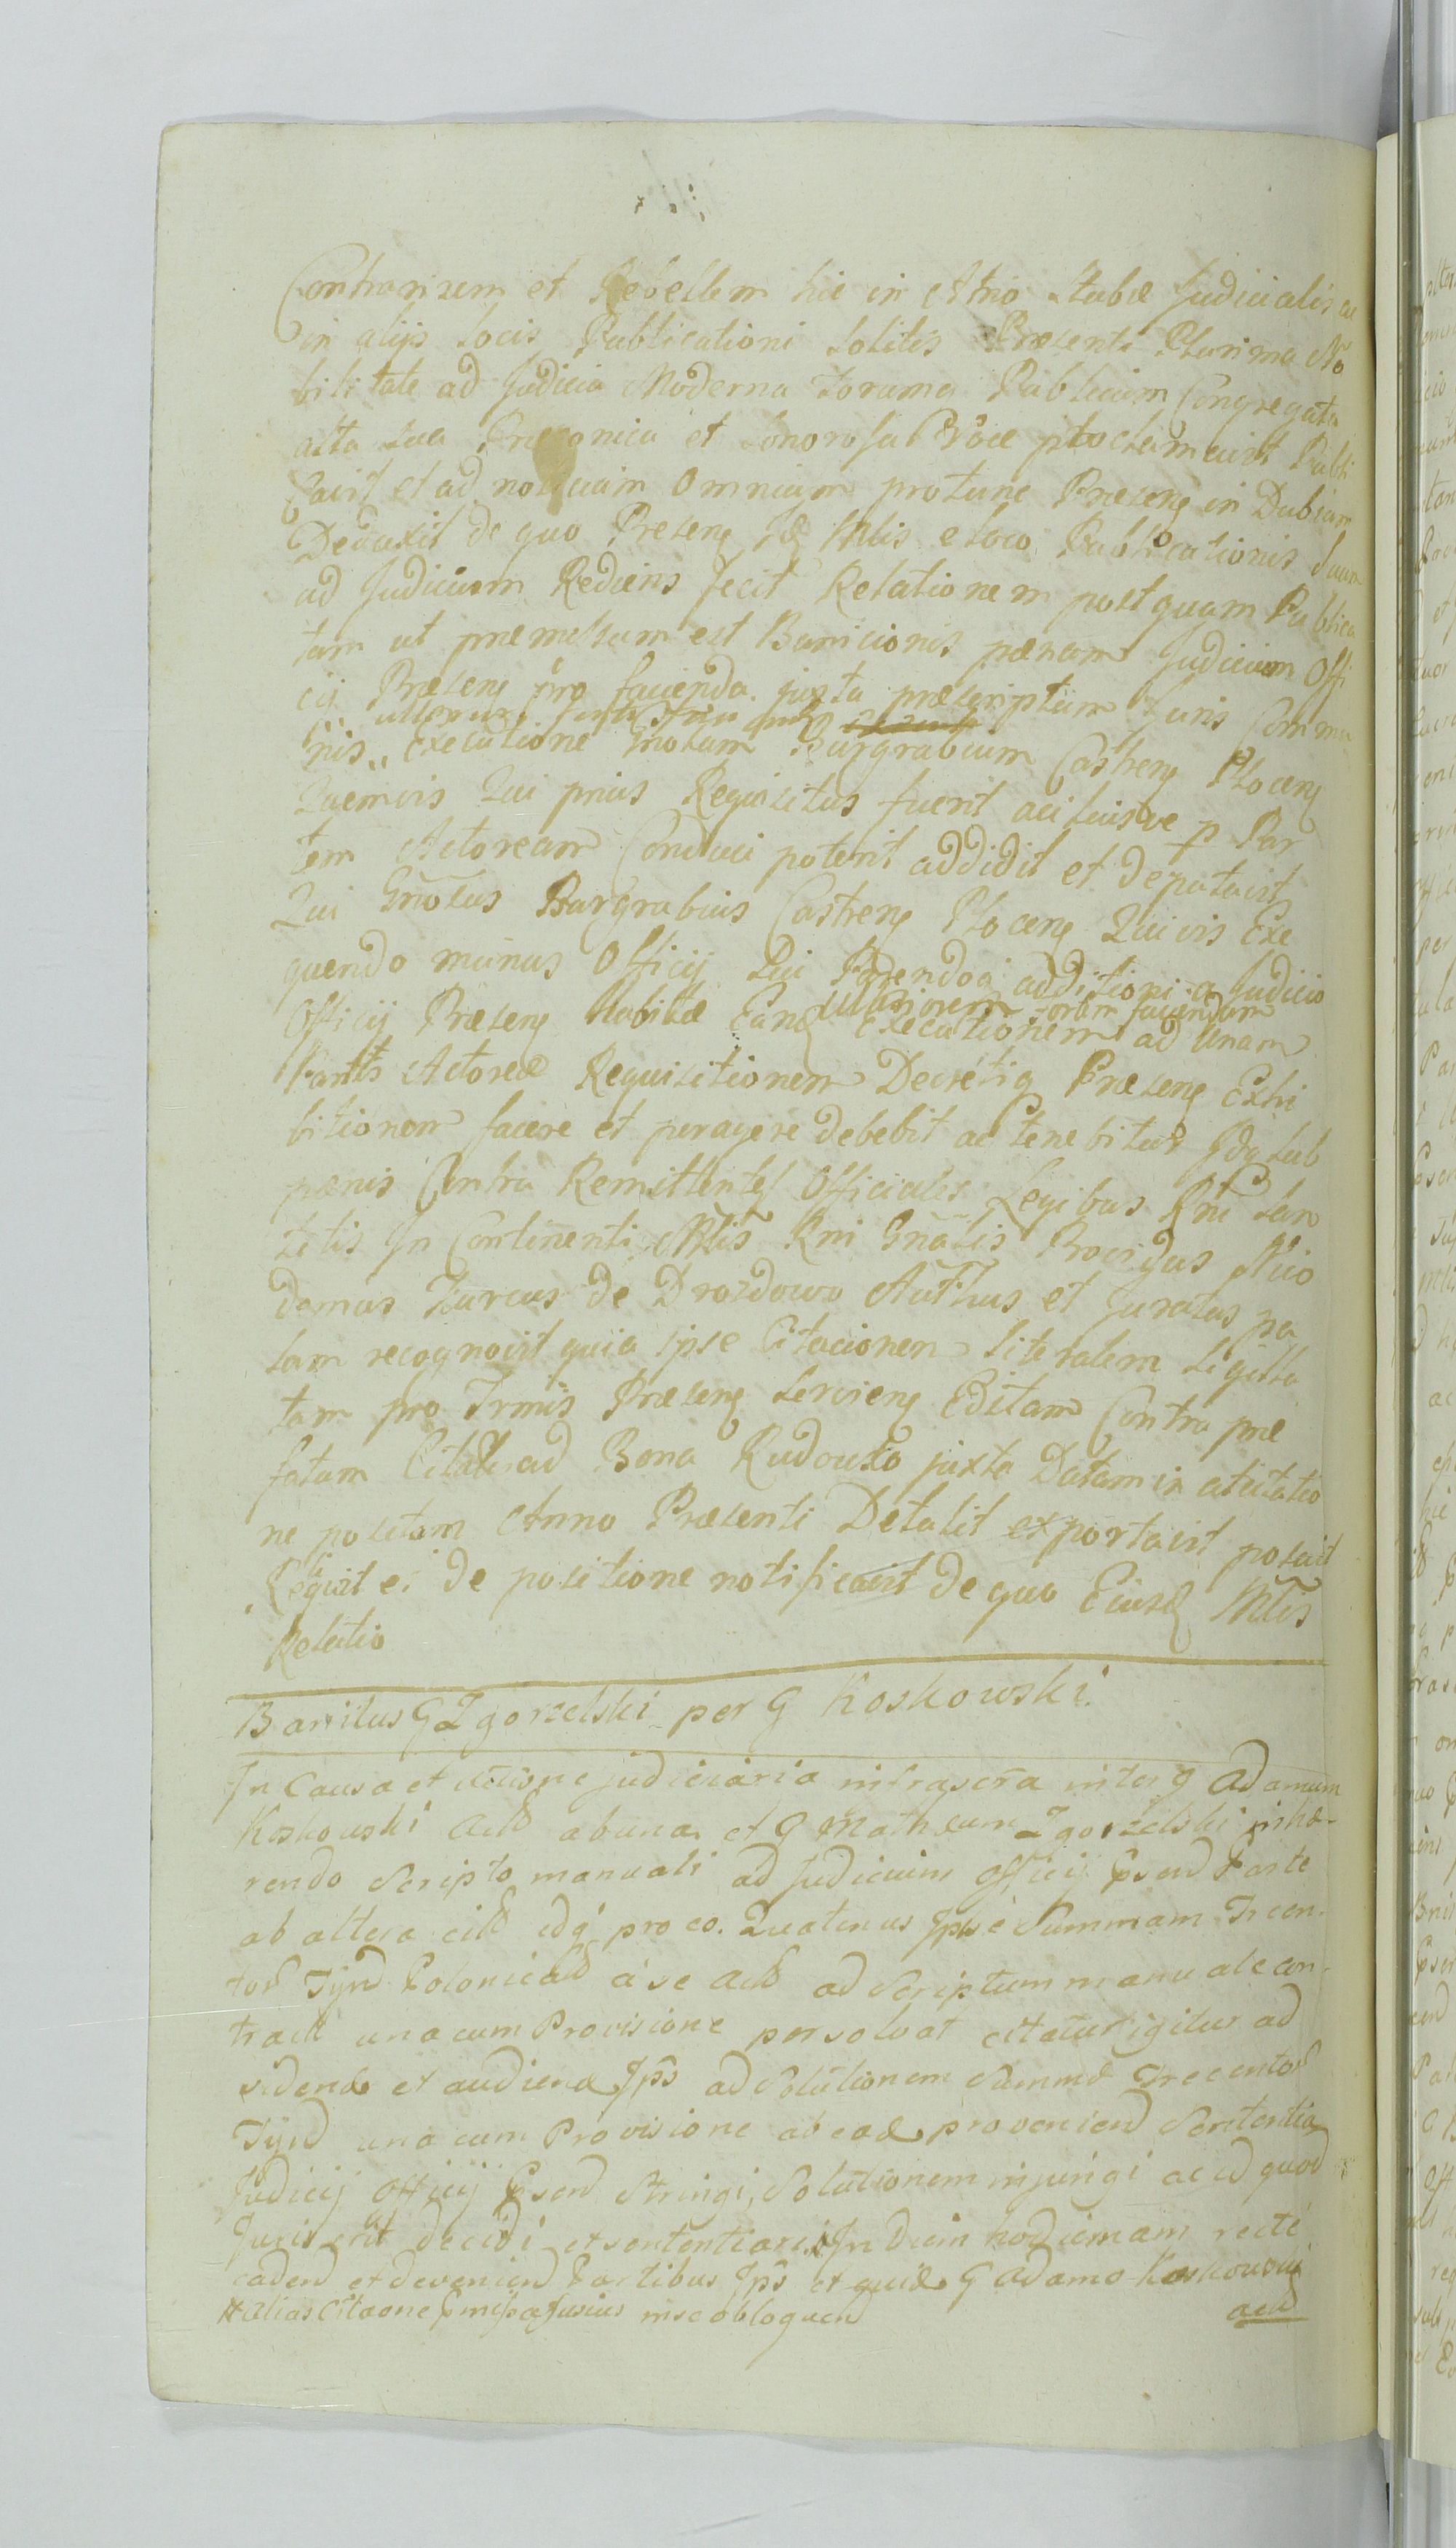 Contrarium et Rebellem hic in Atrio Stubæ Judicialis ac
in alijs Locis Publicationi Solitis Præsenti Plurima No
bilitate ad Judicia Moderna Forumq Publicum Congregata
alta sua Præconica et Sonorosa Voce proclamavit Publi
cavit et ad notitiam omnium protunc Præsen in Dubiam
Deduxit de quo Presen Id Mtlis e loco Publicationis Suam
ad Judicium Rediens fecit Relationem post quam Publica
tam ut præmissum est Banicionis pænam Judicium Offi
cij Præsen pro facienda juxta præscriptum Juris Commu
nis executione Gnosum Burgrabium Castren Plocen
Quemvis Qui prius Requisitus fuerit aci luisve p Par
tem Actoream Conduci poterit addidit et deputavit
Qui Gnosus Burgrabius Castren Plocen Quivis Exe
quendo munus Officij Sui Parendoq additioni a Judicio
ulteriorem faciendam
Officij Præsen Habitæ Eand Executionem ad Unam
Partis Actoreæ Requisitionem Decretiq Præsen Exhi
bitionem facere et peragere debebit ac tenebitur Idq sub
pænis Contra Remittentes Officiales Legibus Rni San
citis In Continenti Mtlis Rni Gnalis Providus Nico
demus Turcus de Drozdowo Authus et Juratus pa
lam recognovit quia ipse Citacionem Literalem Sigilla
tam pro Trmis Præsen Servien Editam Contra præ
fatum Citatu ad Bona Rudowko juxta Datam in atictatio
ne positam Anno Præsenti Detulit exportavit posuit
Reliquit ei de positione notificavit de quo Eiusd Mtlis
Relatio
Banitus G Zgorzelski per G Koskowski.
In Causa et actione judiciaria infrascra inter G Adamum
Koskowski Act ab una et G Matheum Zgorzelski inhæ-
rendo Scripto manuali ad Judicium Officij Psen Parte
ab altera cit idq pro eo. Quatenus Ipse Summam Trecen-
tor Tyn Polonical a se Act ad Scriptum manuale con-
tract una cum Provisione persolvat citatur igitur ad
viden et audien Ips ad Solutionem Summæ Trecentor
Tyn una cum Provisione ab ead provenien Sententia
Judicij Officij Psen Stringi, Solutionem injungi ac id quod
Juris erit decidi et sententiari In Diem hodiernam recte
caden et devenien Partibus Ips et quid G Adamo Koskowski
# alias Citaone Pmissa fusius in se obloquen
act